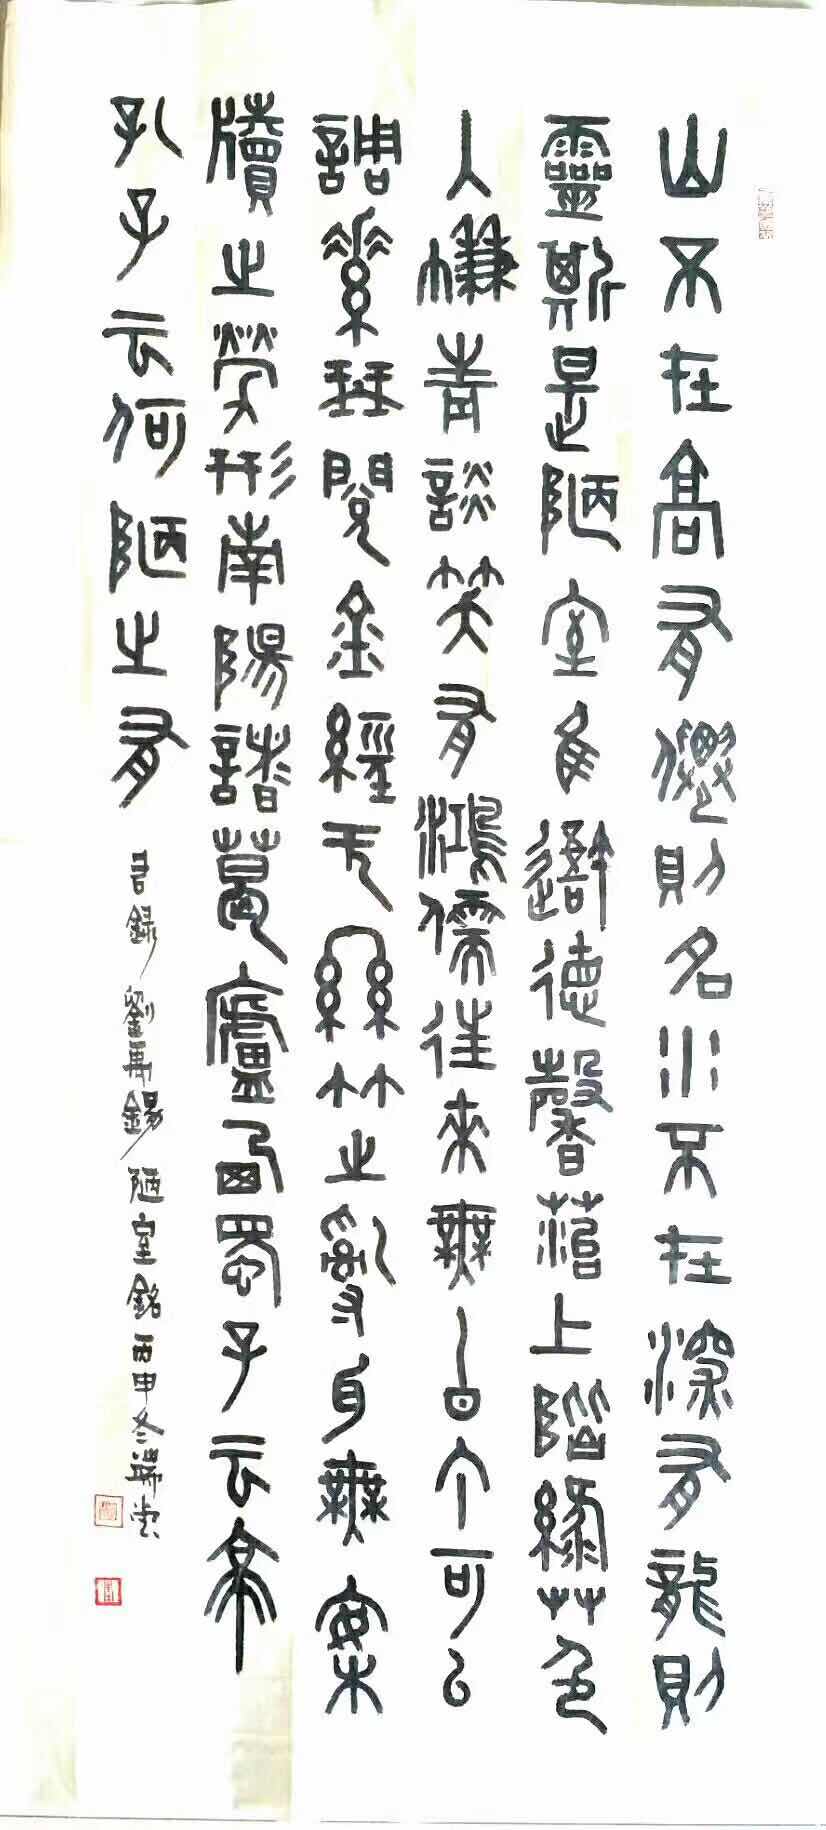 山不在高有僊則名水不在深有龍則
靈斯是陋室隹吾德馨菭上階綠艸色
入㡘青談笑有鴻儒往來無白丁可㠯
調素琴閱金經无絲竹之亂耳無案
牘之勞形南陽諸葛廬西蜀子云亭
孔子云何陋之有
右録劉禹錫陋室銘丙申冬